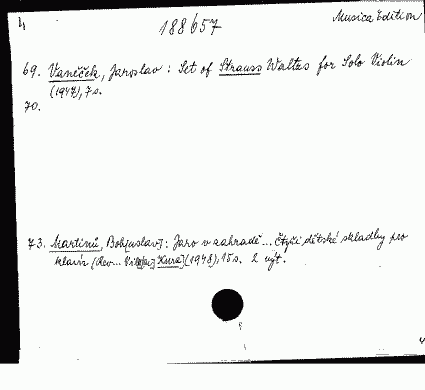 188657
Musica Edition
69. Vaněček, Jaroslav : Set of Strauss Waltzes for Solo Violin
(1947), 7 s.
70.
73. Martinů, Boh[uslav]: Jaro v zahradě... Čtyři dětské skladby pro
klavír (Rev... Vil[ém] Kurz) (1948), 15 s. 2 výt.